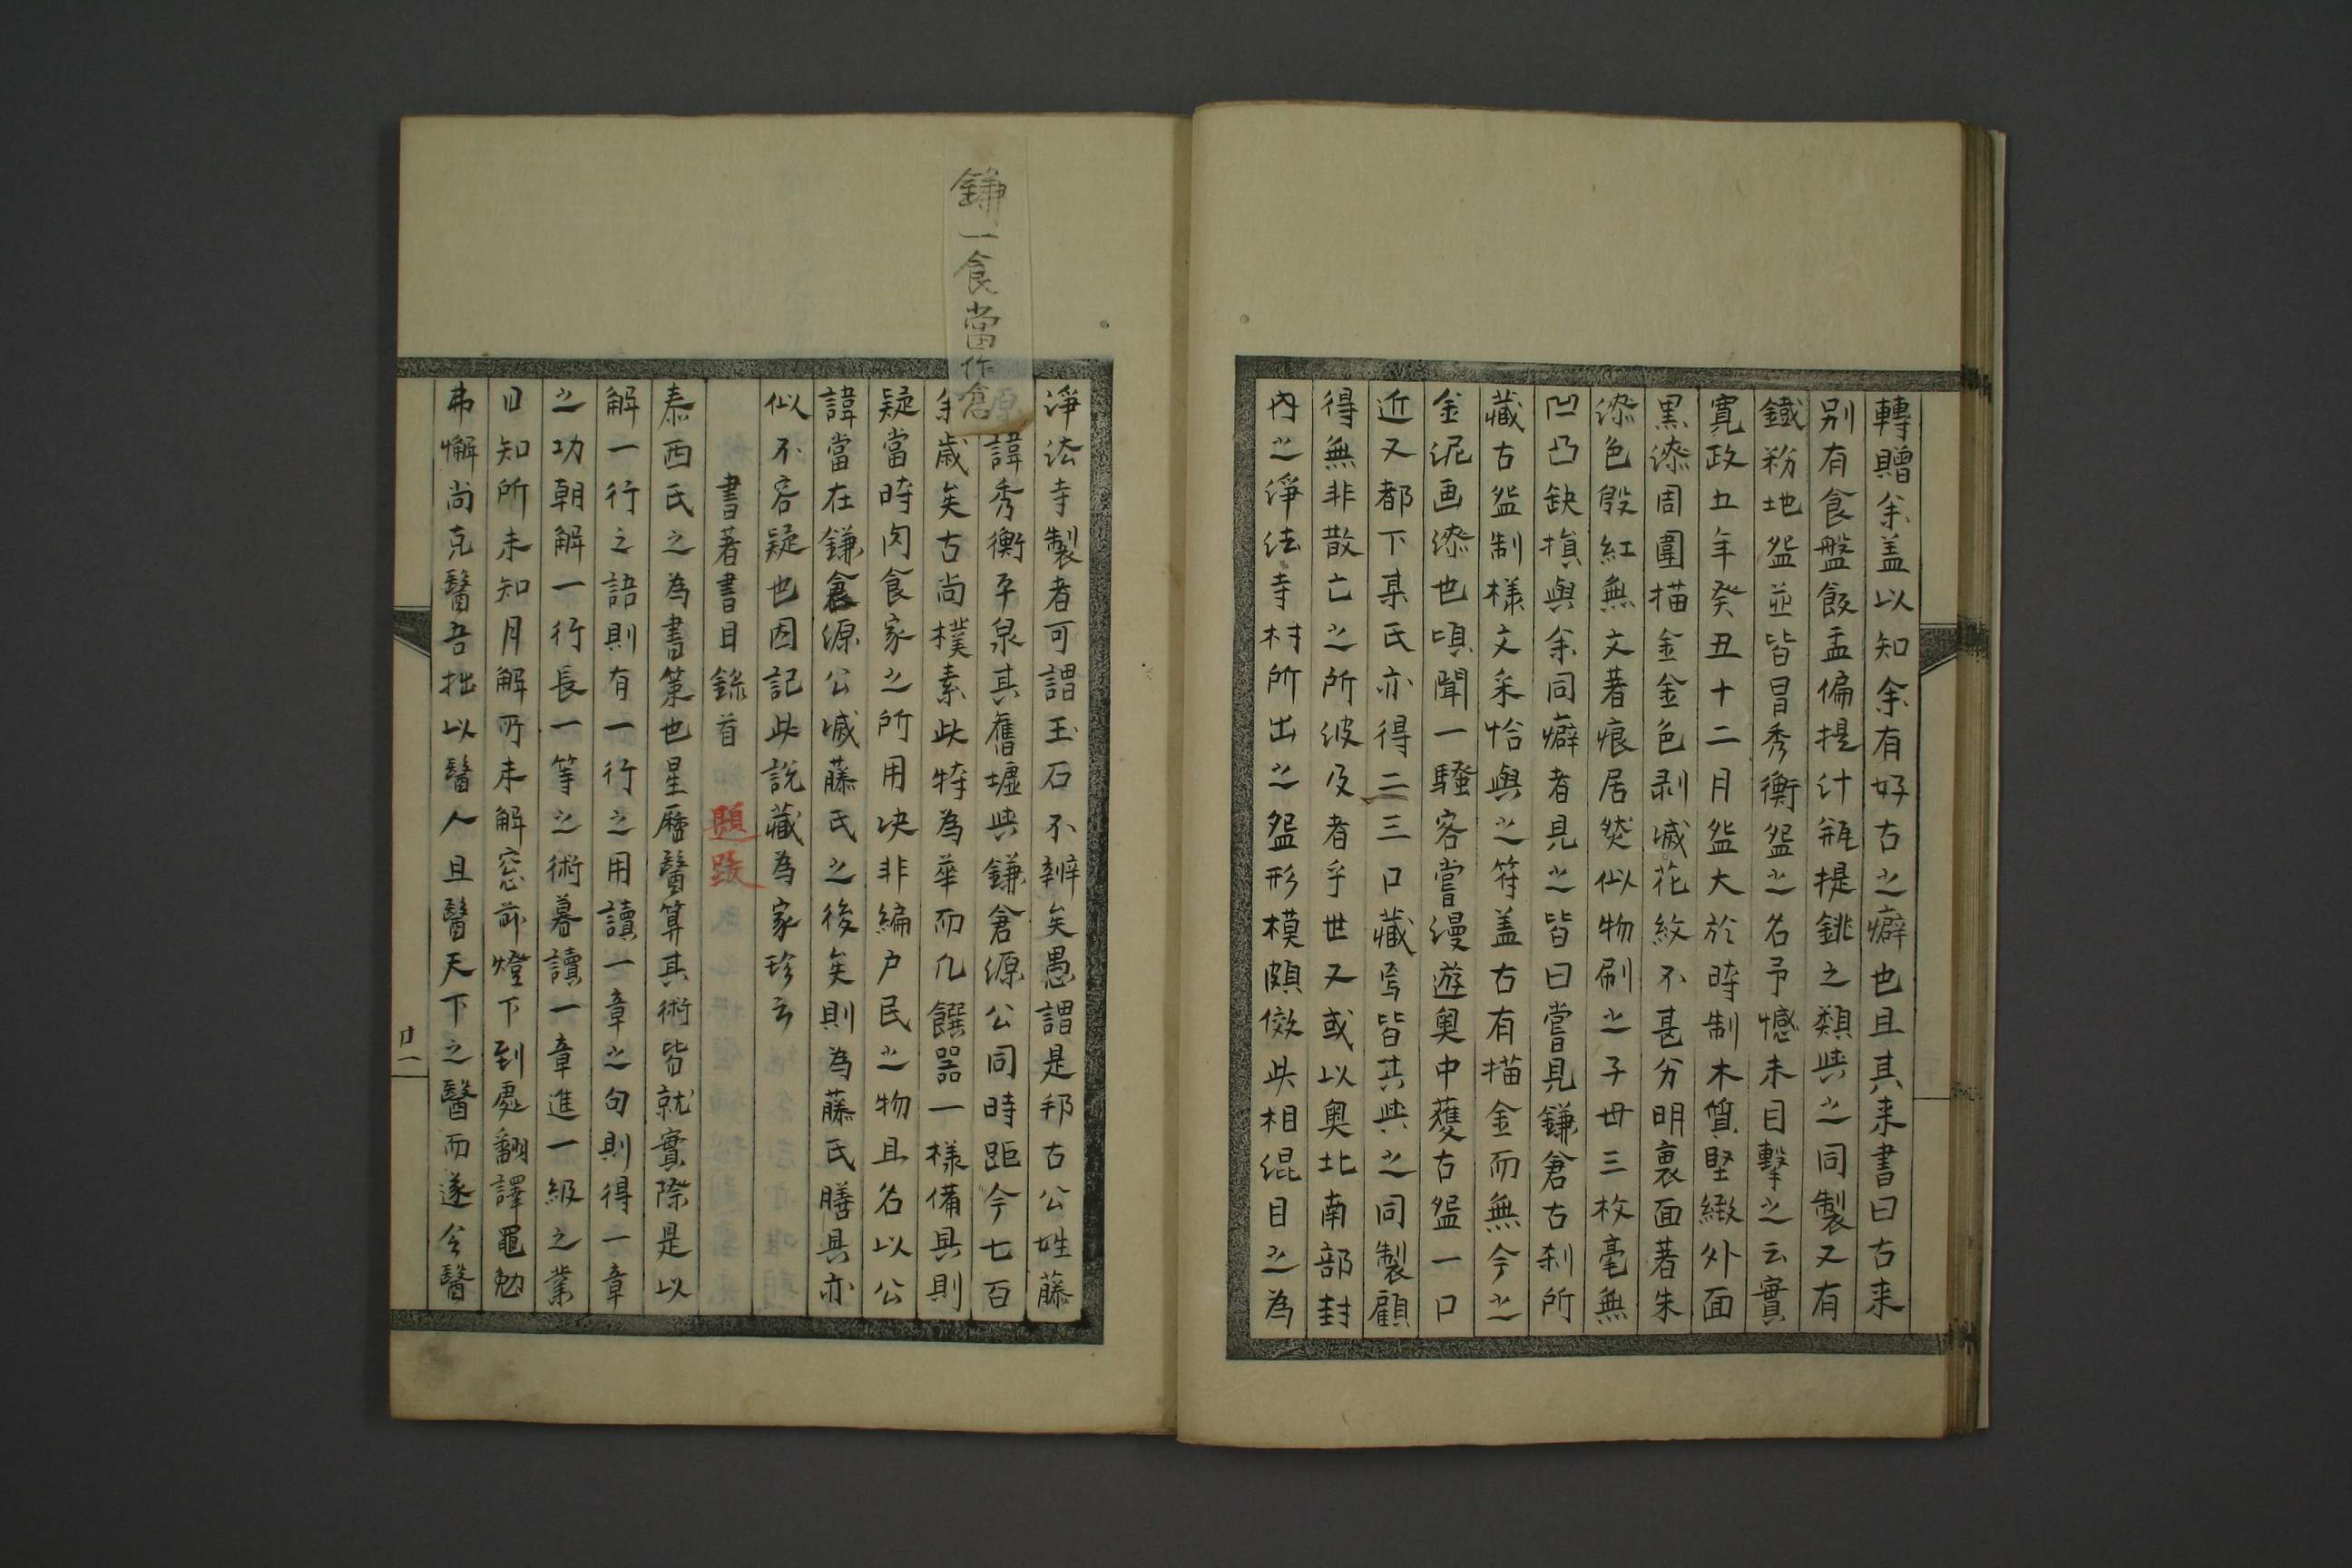 轉贈余盖以知余有好古之癖也且其来書曰古来
别有食盤飯盂偏提汁瓶提銚之類與之同製又有
鐵粉地盌並皆冒秀衡盌之名予憾未目擊之云實
寛政五年癸丑十二月盌大於時制木質堅緻外面
黒漆周圍描金金色剥㓕花紋不甚分明裏面著朱
漆色殷紅無文著痕居然似物刷之子毋三枚毫無
凹凸缺損與余同癖者見之皆曰嘗見鎌倉古刹所
藏古盌制様文采恰與之符盖古有描金而無今之
金泥画漆也頃聞一騷客嘗漫遊奥中獲古盌一口
近又都下某氏亦得二三口藏焉皆其與之同製顧
得無非散亡之所波及者乎世又或以奥北南部封
内之浄法寺村所出之盌形模頗倣此相混目之為
浄法寺製者可謂玉石不辨矣愚謂是邦古公姓藤
諱秀衡平泉其舊墟與鎌倉源公同時距今七百
年歳矣古尚樸素此特為華而凢饌器一様備具則
疑當時肉食家之所用决非編户民之物且名以公
諱當在鎌倉源公滅藤氏之後矣則為藤氏膳具亦
似不容疑也因記此説藏為家珍云
書著書目錄首 題跋
泰西氏之為書策也星曆醫算其術皆就實際是以
解一行之語則有一行之用讀一章之句則得一章
之功朝解一行長一等之術暮讀一章進一級之業
日知所未知月解所未解窓前燈下到處翻譯黽勉
弗懈尚克醫吾拙以醫人且醫天下之醫而遂令醫
廿一
鎌一食當作倉